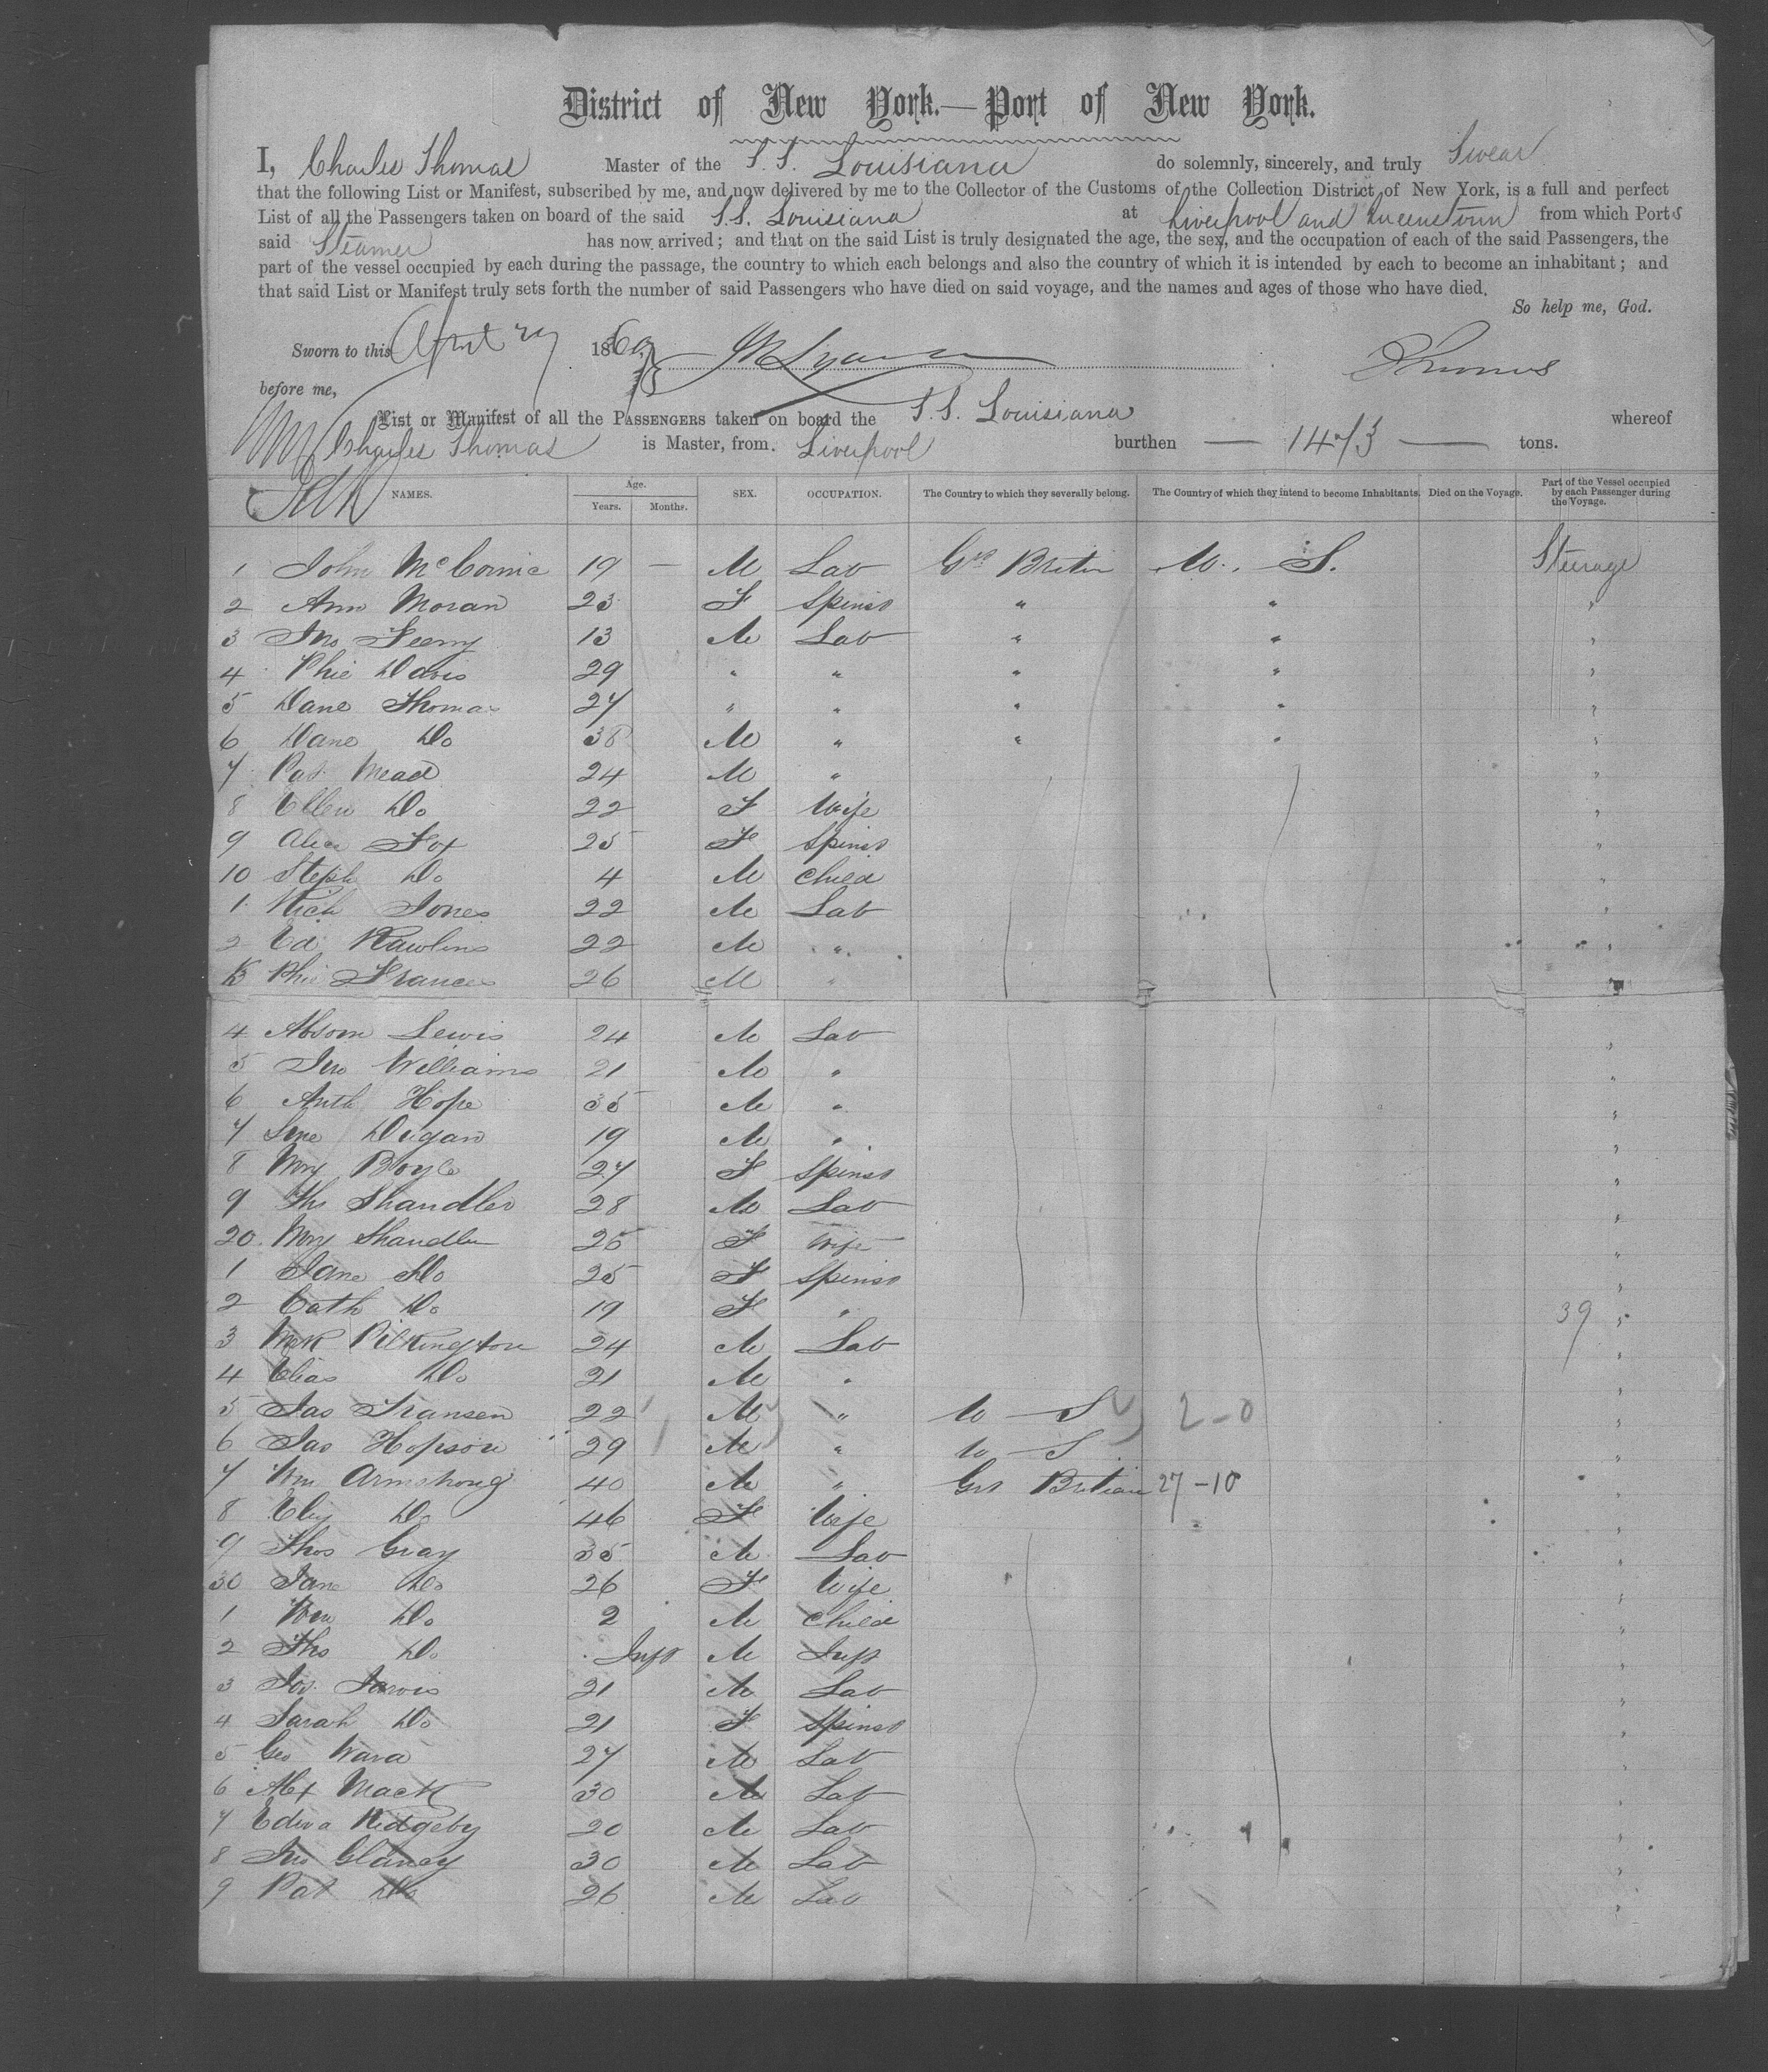 District of New York.—Port of New York.
I, Charles Thomas Master of the S.S. Louisiana do solemnly, sincerely, and truly Swear
that the following List or Manifest, subscribed by me, and now delivered by me to the Collector of the Customs of the Collection District of New York, is a full and perfect
List of all the Passengers taken on board of the said S.S. Louisiana at Liverpool and Queenstown from which Ports
said Steamer has now arrived; and that on the said List is truly designated the age, the sex, and the occupation of each of the said Passengers, the
part of the vessel occupied by each during the passage, the country to which each belongs and also the country of which it is intended by each to become an inhabitant; and
that said List or Manifest truly sets forth the number of said Passengers who have died on said voyage, and the names and ages of those who have died.
So help me, God.
Sworn to this April 1869 Thomas
before me,
List or Manifest of all the PASSENGERS taken on board the S.S. Louisiana whereof
Charles Thomas is Master, from Liverpool burthen — 1473 — tons.
NAMES. Age. Years. Months. SEX. OCCUPATION. The Country to which they severally belong. The Country of which they intend to become Inhabitants. Died on the Voyage. Part of the Vessel occupied by each Passenger during the Voyage.
1 John McCormic 19 — M Lab Grt Britin U. S. Steerage
2 Ann Moran 23 F Spinst " " "
3 Jno Feeny 13 M Lab " " "
4 Phie Davis 29 " " " " "
5 Dane Thomas 27 " " " " "
6 Dane Do 38 M " " " "
7 Pat Mead 24 M " "
8 Ellen Do 22 F Wife "
9 Alice Fox 25 F Spinst "
10 Steph Do 4 M Child "
1 Rich Jones 22 M Lab "
2 Ed Rawlins 22 M " "
3 Phie Frances 26 M " "
4 Absom Lewis 24 M Lab "
5 Jno Williams 21 M " "
6 Anth Hope 35 M " "
7 Dugan 19 M " "
8 Mry Boyle 27 F Spinst "
9 Ths Shandler 28 M Lab "
20 Mry Shandler 25 F Wife "
1 Jane Do 25 F Spinst "
2 Cath Do 19 F " 39 "
3 Mck Pilkington 24 M Lab "
4 Elias Do 21 M " "
5 Jas Fransen 22 M " U S 2-0 "
6 Jas Hopson 29 M " U S "
7 Wm Armstrong 40 M " Grt Britian 27-10 "
8 Eliz Do 46 F Wife "
9 Thos Gray 35 M Lab "
30 Jane Do 26 F Wife "
1 Wm Do 2 M Child "
2 Ths Do Inft M Inft "
3 Jos Jarvis 21 M Lab "
4 Sarah Do 21 F Spinst "
5 Geo Ward 27 M Lab "
6 Alex Mack 30 M Lab "
7 Edwd Ridgeby 20 M Lab "
8 Jno Glancy 30 M Lab "
9 Pat Do 26 M Lab "